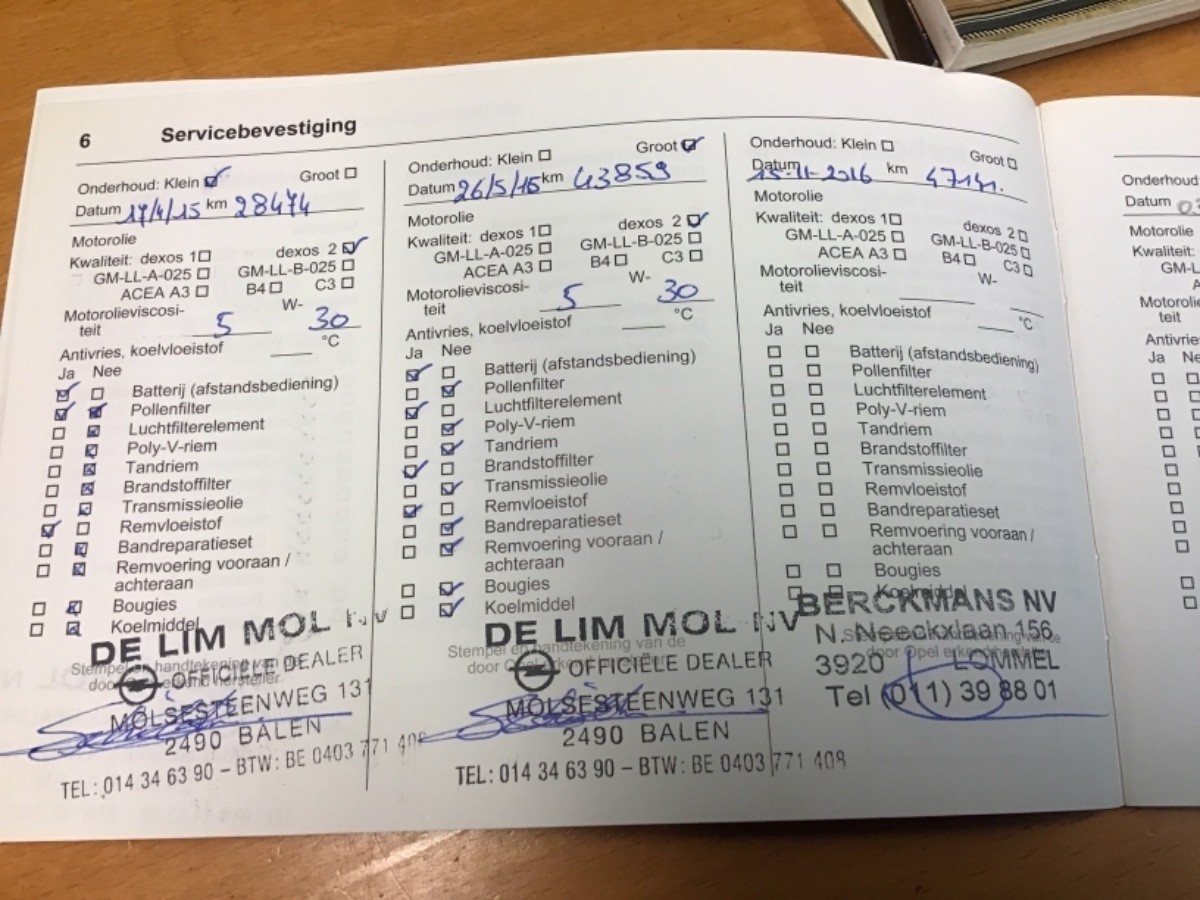 6 Servicebevestiging
Onderhoud: Klein Groot
Datum 17/4/15 km 28474
Motorolie
Kwaliteit: dexos 1 dexos 2
GM-LL-A-025 GM-LL-B-025
ACEA A3 B4 C3
Motorolieviscosi-
teit 5 W- 30
Antivries, koelvloeistof °C
Ja Nee
Batterij (afstandsbediening)
Pollenfilter
Luchtfilterelement
Poly-V-riem
Tandriem
Brandstoffilter
Transmissieolie
Remvloeistof
Bandreparatieset
Remvoering vooraan /
achteraan
Bougies
Koelmiddel
DE LIM MOL NV
Stempel en handtekening van de
OFFICIËLE DEALER
MOLSESTEENWEG 131
2490 BALEN
TEL: 014 34 63 90 – BTW: BE 0403 771 408
Onderhoud: Klein Groot
Datum 26/5/16 km 43859
Motorolie
Kwaliteit: dexos 1 dexos 2
GM-LL-A-025 GM-LL-B-025
ACEA A3 B4 C3
Motorolieviscosi-
teit 5 W- 30
Antivries, koelvloeistof °C
Ja Nee
Batterij (afstandsbediening)
Pollenfilter
Luchtfilterelement
Poly-V-riem
Tandriem
Brandstoffilter
Transmissieolie
Remvloeistof
Bandreparatieset
Remvoering vooraan /
achteraan
Bougies
Koelmiddel
DE LIM MOL NV
Stempel en handtekening van de
OFFICIËLE DEALER
MOLSESTEENWEG 131
2490 BALEN
TEL: 014 34 63 90 – BTW: BE 0403 771 408
Onderhoud: Klein Groot
Datum 11-2016 km 47141.
Motorolie
Kwaliteit: dexos 1 dexos 2
GM-LL-A-025 GM-LL-B-025
ACEA A3 B4 C3
Motorolieviscosi-
teit W-
Antivries, koelvloeistof °C
Ja Nee
Batterij (afstandsbediening)
Pollenfilter
Luchtfilterelement
Poly-V-riem
Tandriem
Brandstoffilter
Transmissieolie
Remvloeistof
Bandreparatieset
Remvoering vooraan /
achteraan
Bougies
Koelmiddel
BERCKMANS NV
N. Neeckxlaan 156
3920 LOMMEL
Tel (011) 39 88 01
Onderhoud:
Datum
Motorolie
Kwaliteit:
GM-L
Motorolie
teit
Antivries
Ja Ne